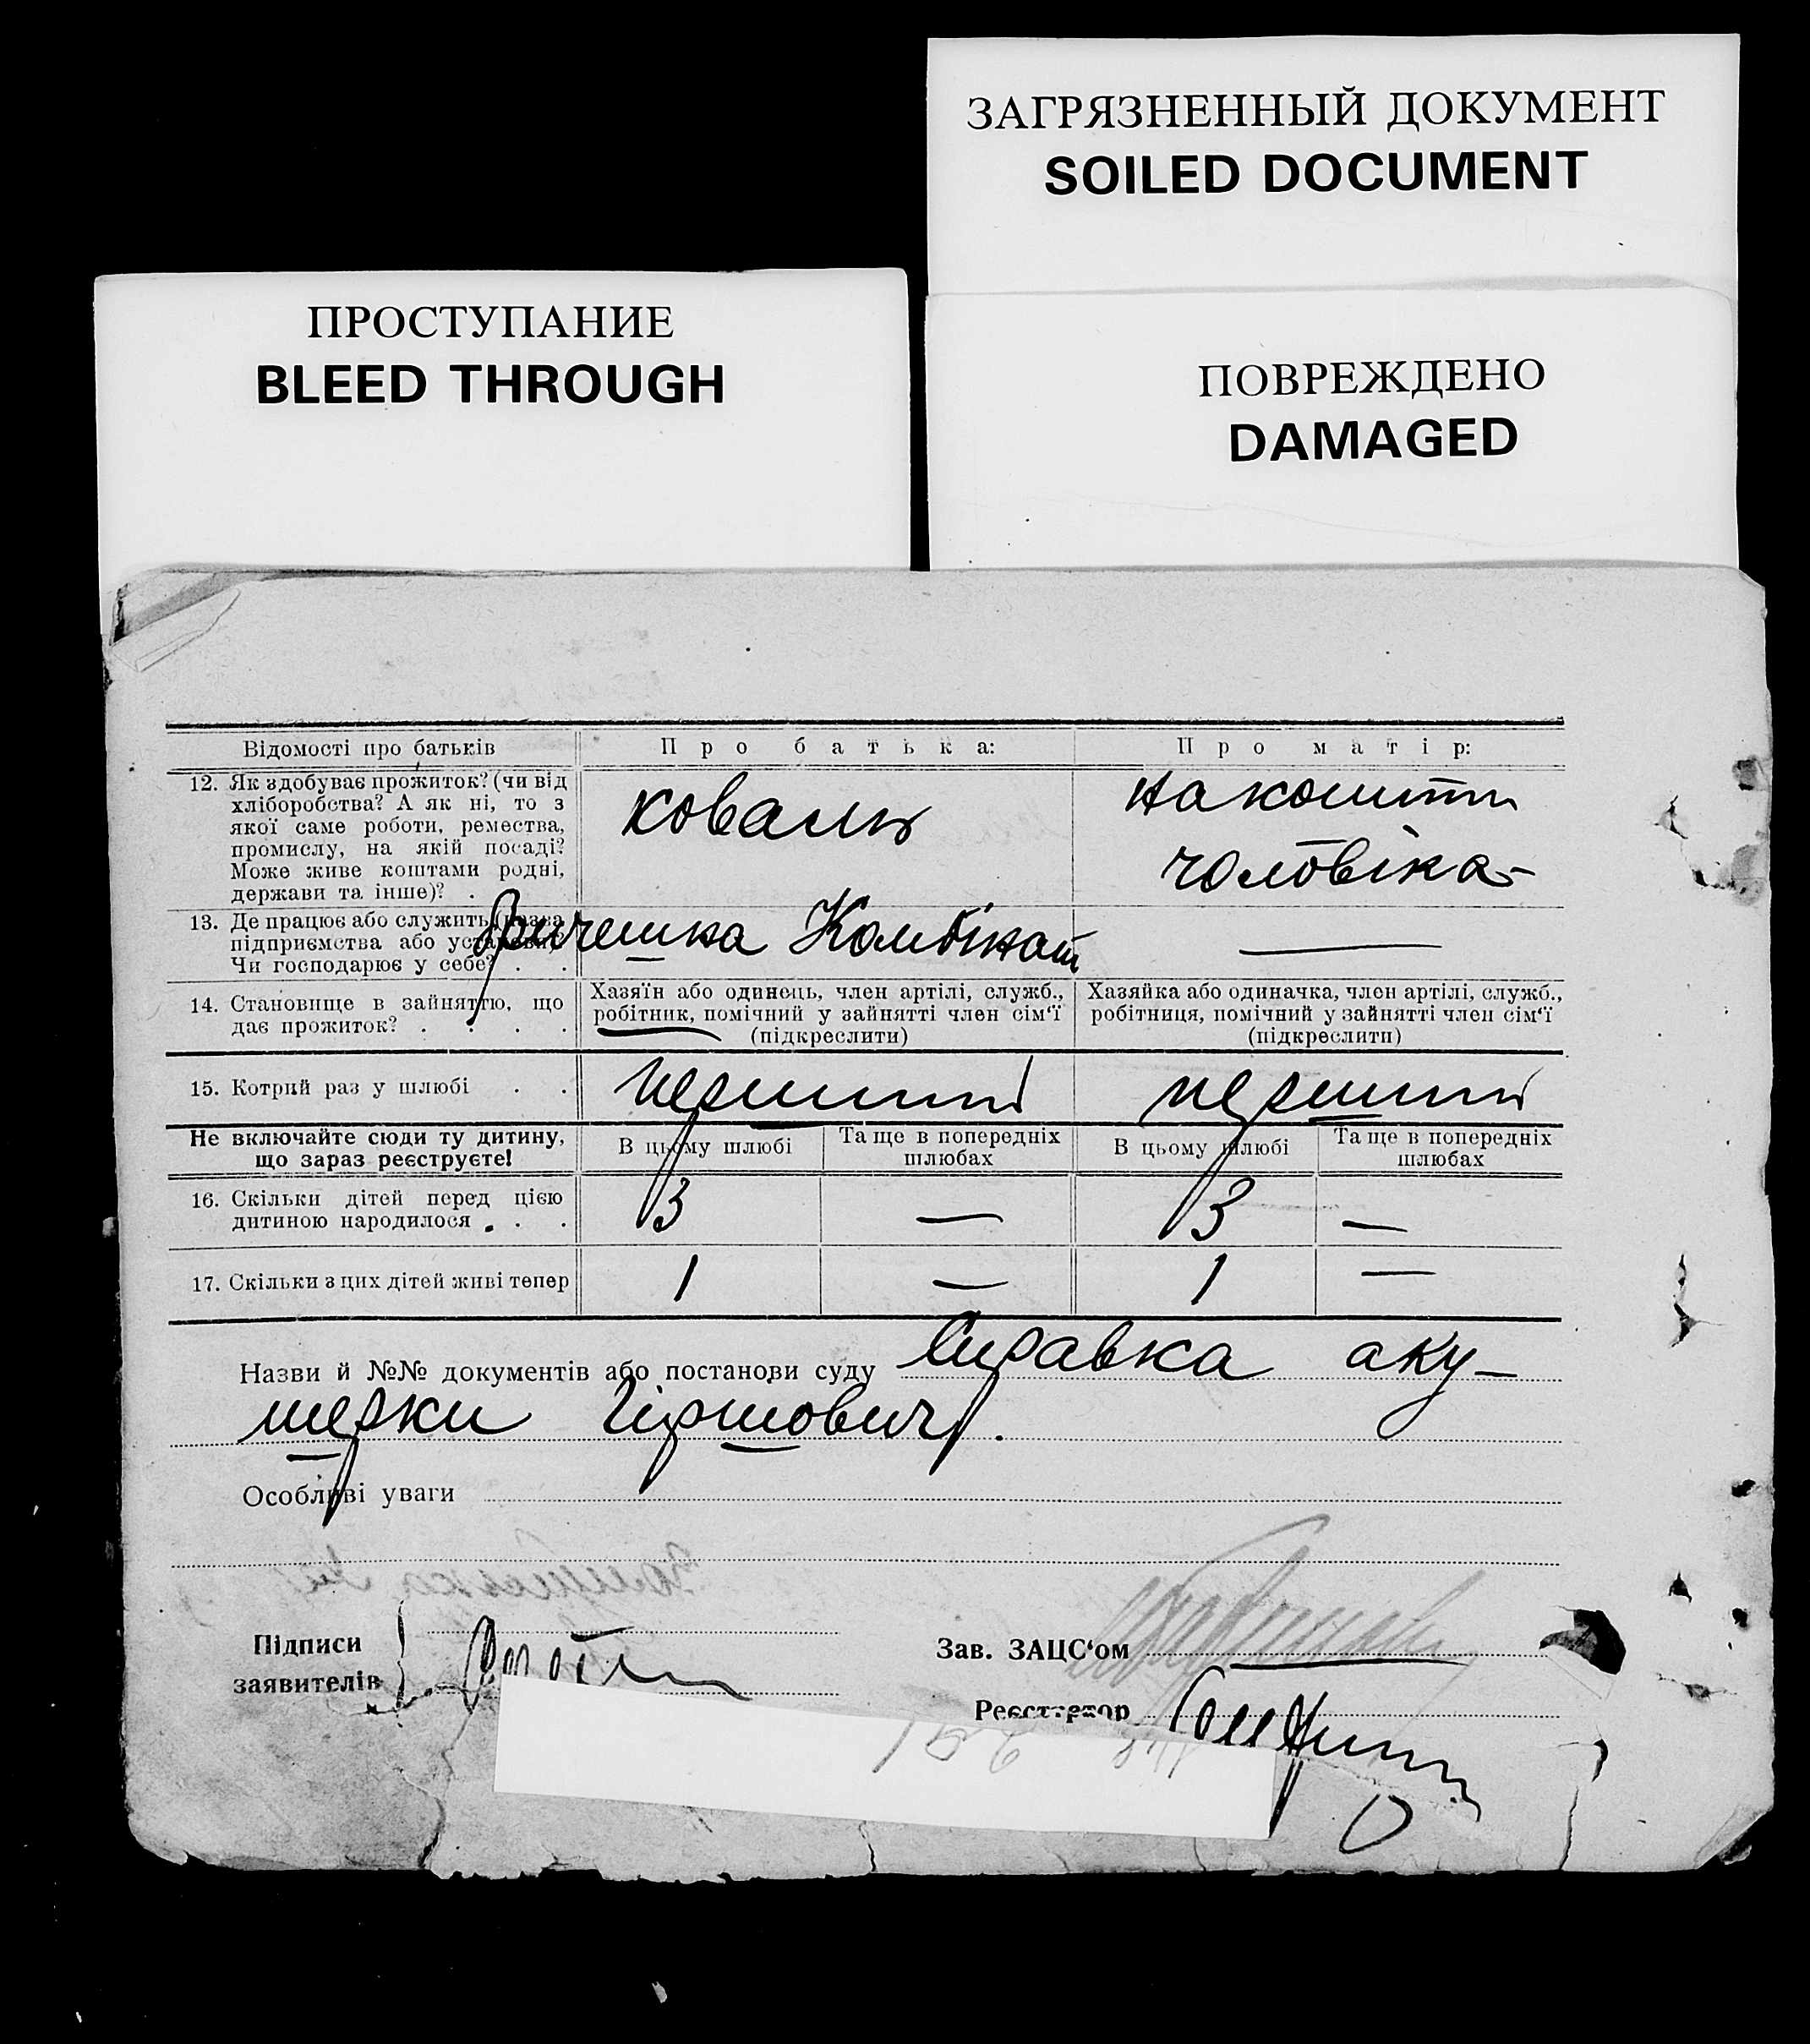 ЗАГРЯЗНЕННЫЙ ДОКУМЕНТ
SOILED DOCUMENT
ПРОСТУПАНИЕ
BLEED THROUGH
ПОВРЕЖДЕНО
DAMAGED
Відомості про батьків
Про батька:
Про матір:
12. Як здобуває прожиток? (чи від
хліборобства? А як ні, то з
якої саме роботи, ремества,
промислу, на якій посаді?
Може живе коштами родні,
держави та інше)? .
коваль
на кошти
чоловіка
13. Де працює або служить (назва
підприємства або установи)?
Чи господарює у себе? . .
Комбінат
—
14. Становище в зайняттю, що
дає прожиток? . . . .
Хазяїн або одинець, член артілі, служб.,
робітник, помічний у зайнятті член сім‘ї
(підкреслити)
Хазяйка або одиначка, член артілі, служб.,
робітниця, помічний у зайнятті член сім‘ї
(підкреслити)
15. Котрий раз у шлюбі . .
перший
перший
Не включайте сюди ту дитину,
що зараз реєструєте!
В цьому шлюбі
Та ще в попередніх
шлюбах
В цьому шлюбі
Та ще в попередніх
шлюбах
16. Скільки дітей перед цією
дитиною народилося . . .
3
—
3
—
17. Скільки з цих дітей живі тепер
1
—
1
—
Назви й №№ документів або постанови суду Справка аку-
шерки Гіршович.
Особливі уваги
Підписи
заявителів
Зав. ЗАЦС‘ом
Реєстратор